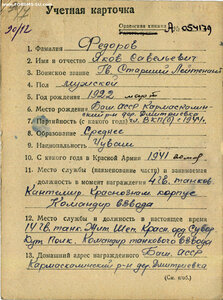 Учетная карточка
Орденская книжка А № 054179
20/12
1. Фамилия Федоров
2. Имя и отчество Яков Савельевич
3. Воинское звание Гв. Старший Лейтенант
4. Пол мужской
5. Год рождения 1922 март
6. Место рождения Баш. асср Кармаскалинский р-н дер. Дмитриевка
7. Партийность (с какого года) чл. ВКП(б) с 1944г.
8. Образование Среднее
9. Национальность Чуваш
10. С какого года в Красной Армии 1941
11. Место службы (наименование части) и занимаемая
должность в момент награждения 4 гв. танков.
Кантемир. Краснознам. корпус
Командир взвода
12. Место службы и должность в настоящее время
14 гв. танк. Жит Шеп. Красн. орд. Сувор
Кут. Полк. Командир танкового взвода
13. Домашний адрес Баш. асср
Кармаскалинский р-н дер. Дмитриевка
(См. на об.)